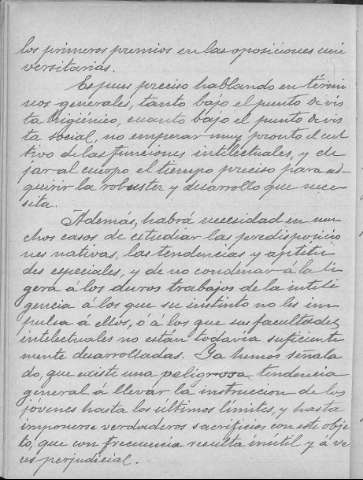 los primeros premios en las oposiciones uni
versitarias.
Es pues preciso hablando en térmi
nos generales, tanto bajo el punto de vis
ta higiénico, cuanto bajo el punto de vis
ta social, no empezar muy pronto el cul
tivo de las funciones intelectuales, y de
jar al cuerpo el tiempo preciso para ad
quirir la robustez y desarrollo que nece
sita.
Además, habrá necesidad en mu
chos casos de estudiar las predisposicio
nes nativas, las tendencias y aptitu
des especiales, y de no condenar á la li
gera á los duros trabajos de la inteli
gencia á los que su instinto no les im
pulsa á ellos, ó á los que sus facultades
intelectuales no estan todavia suficiente
mente desarrolladas. Ya hemos señala
do, que existe una peligrosa tendencia
general á llevar la instruccion de los
jóvenes hasta los últimos límites, y hasta
imponerse verdaderos sacrificios con este obje
to, que con frecuencia resulta inútil y á ve
ces perjudicial.